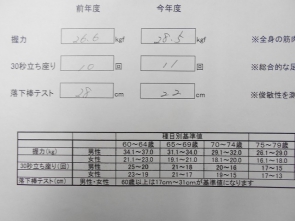 前年度 今年度
握力 26.6 kgf 28.5 kgf ※全身の筋肉
30秒立ち座り 10 回 11 回 ※総合的な足
落下棒テスト 28 cm 22 cm ※俊敏性を測
種目別基準値
60〜64歳 65〜69歳 70〜74歳 75〜79歳
握力(kg) 男性 34.1〜37.0 31.1〜34.0 29.1〜32.0 26.1〜29.0
女性 21.1〜23.0 19.1〜21.0 18.1〜20.0 16.1〜18.0
30秒立ち座り(回) 男性 25〜20 21〜18 20〜16 17〜15
女性 23〜19 21〜17 19〜15 17〜13
落下棒テスト(cm) 男性・女性 60歳以上は17cm〜31cmが基準値になります